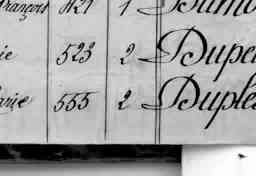 françois 421 1 Dumo
ie 523 2 Dupe
arie 555 2 Duples